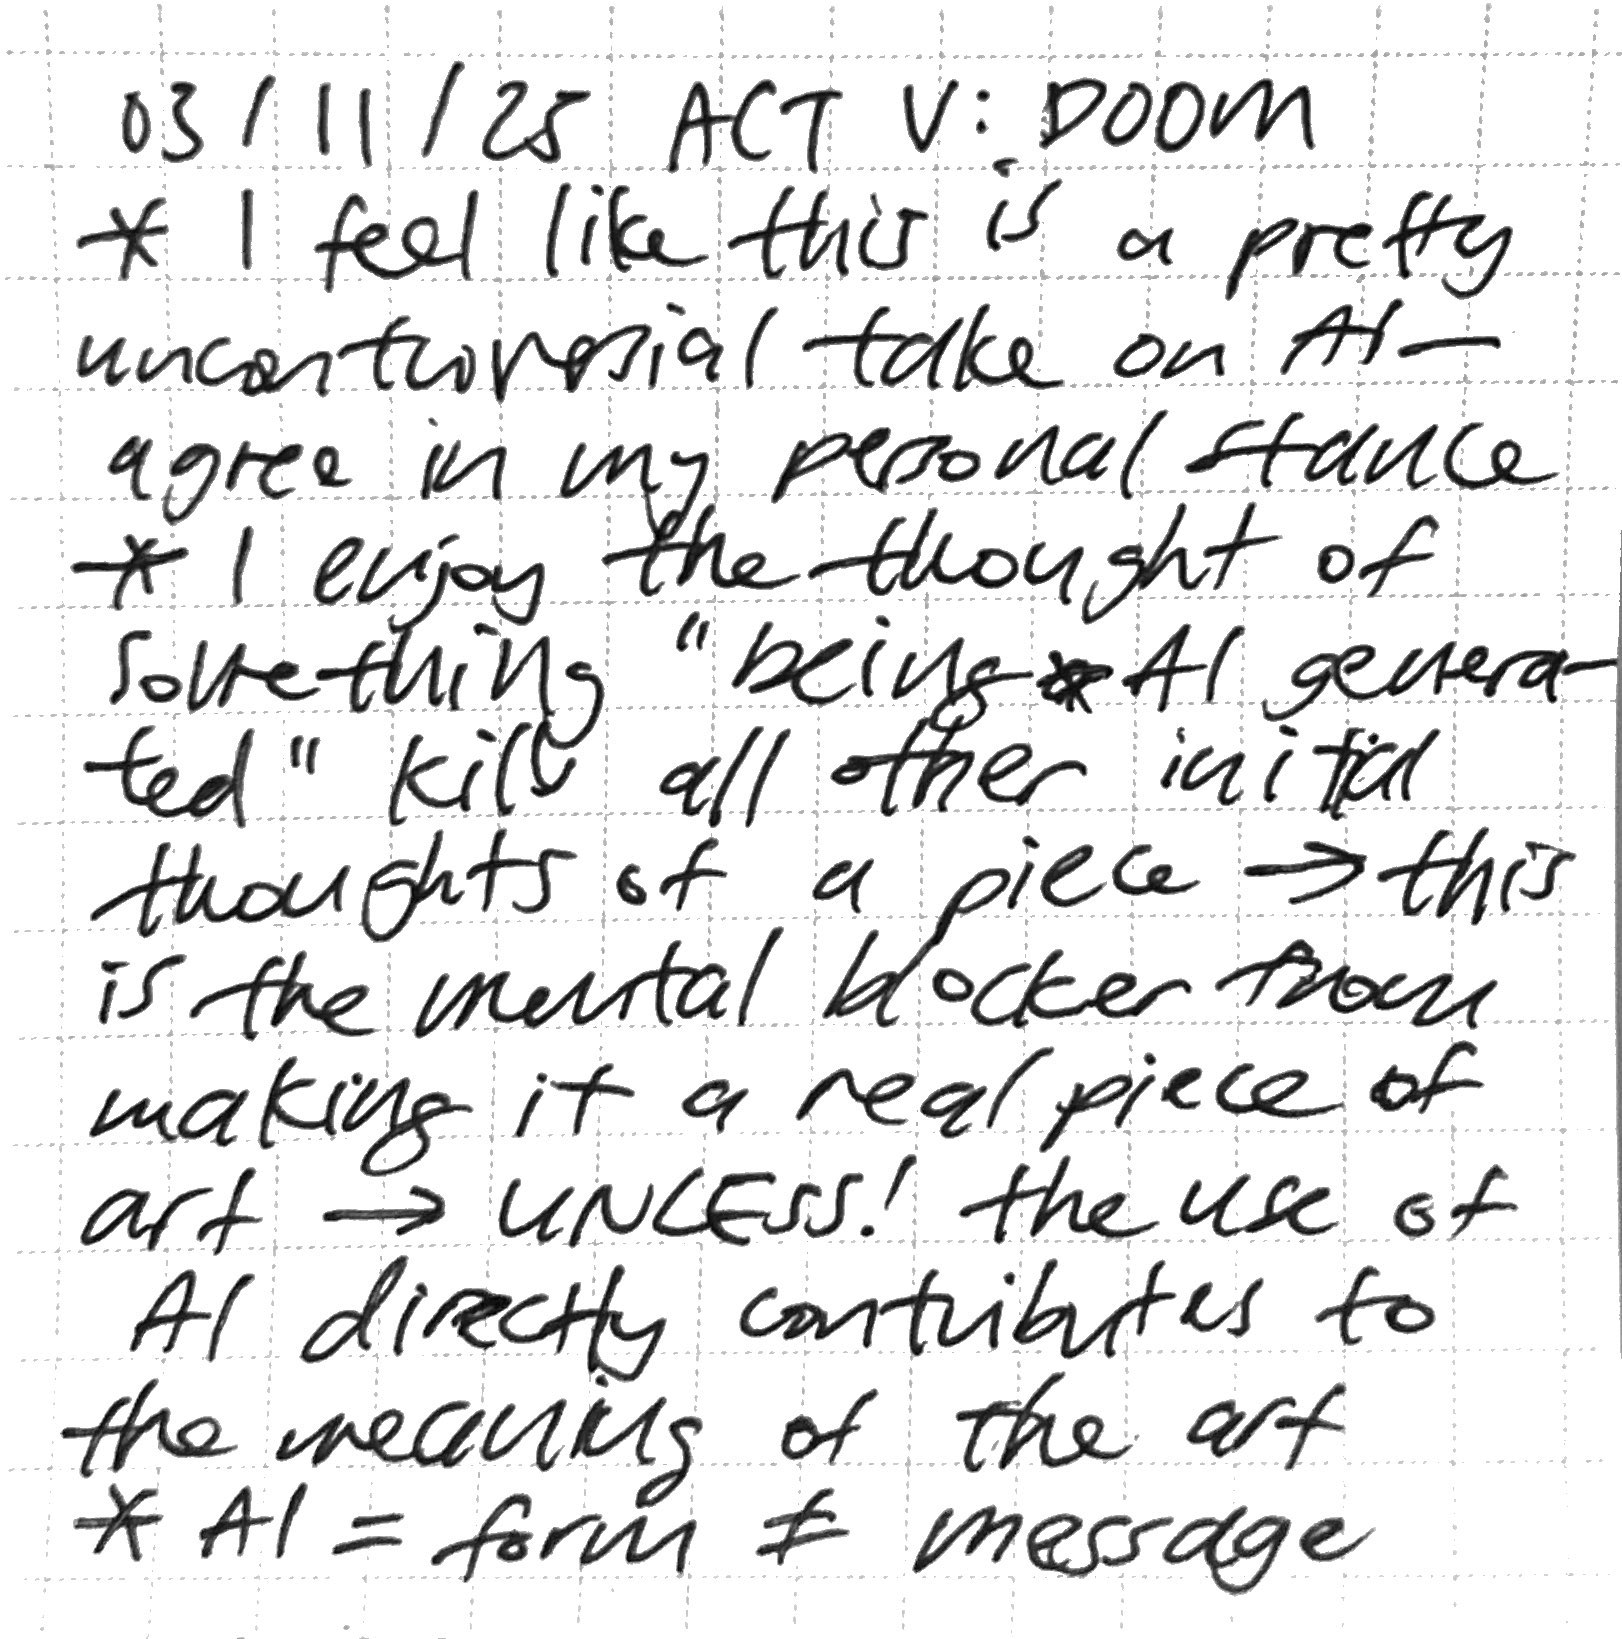 03/11/25 ACT V: DOOM
* I feel like this is a pretty
uncontroversial take on AI —
agree in my personal stance
* I enjoy the thought of
something "being AI genera-
ted" kills all other initial
thoughts of a piece → this
is the mental blocker from
making it a real piece of
art → UNLESS! the use of
AI directly contributes to
the meaning of the art
* AI = form ≠ message